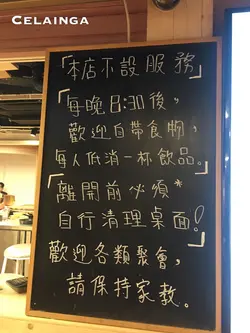 CELAINGA
「本店不設服務」
「每晚8:30後,
歡迎自帶食物,
每人低消一杯飲品。」
「離開前必須*
自行清理桌面!」
歡迎各類聚會,
請保持家教。